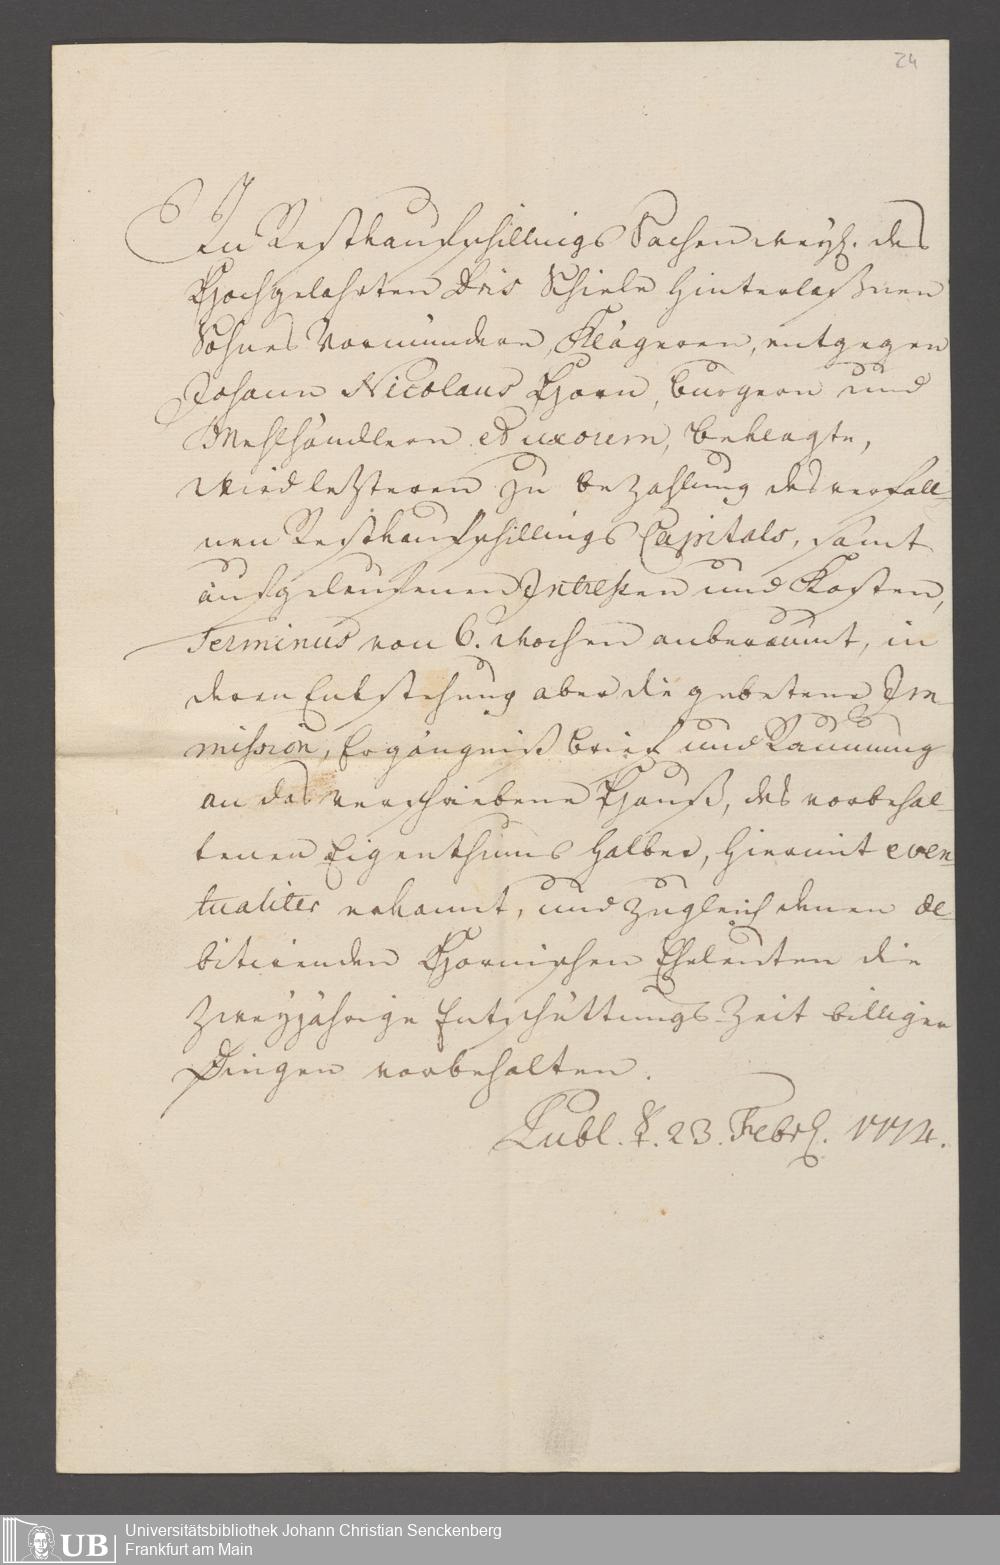 24
In Restkaufschillings Sachen weyl. des
Hochgelahrten Dris Schiele hinterlaßnen
Sohnes Vormündere, Klägeren, entgegen
Johann Nicolaus Horn, burgern und
Mehlhändlern et uxorem, beklagte,
wird letzteren zu bezahlung des verfall-
nen Restkaufschillings Capitals, samt
aufgelaufenen Intreßen und Kosten,
Terminus von 6. Wochen anberaumt, in
deren Entstehung aber die gebetene Im-
mission, Ergängniß brief und Raumung
an das verschriebene Hauß, des vorbehal-
tenen Eigenthums halber, hiermit even-
tualiter erkannt, und zugleich denen de-
bitirenden Hornischen Eheleuten die
zweyjährige Entschüttungs-Zeit billiger
Dingen vorbehalten.
Publ. d. 23. Febr. 1774.
UB
Universitätsbibliothek Johann Christian Senckenberg
Frankfurt am Main